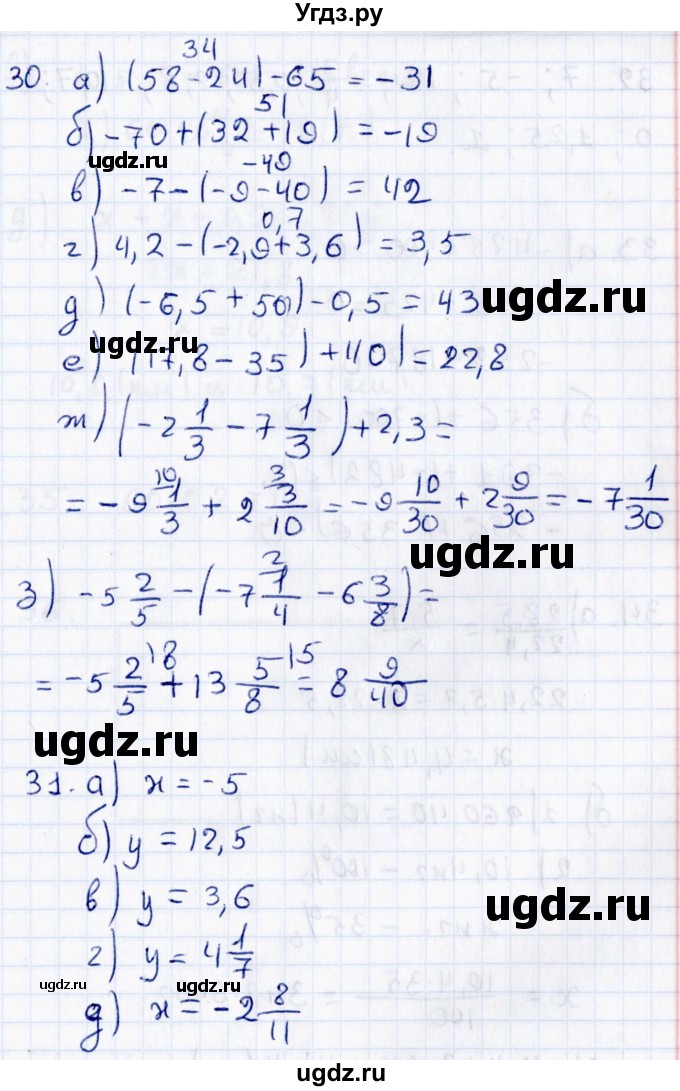 Угдз.ру
30. а) (58-24)-65 = -31
34
б) -70+(32+19) = -19
51
в) -7-(-9-40) = 42
-49
г) 4,2-(-2,9+3,6) = 3,5
0,7
д) (-6,5+50)-0,5 = 43
е) (17,8-35)+40 = 22,8
ж) (-2 1/3 - 7 1/3)+2,3 =
= -9 1/3 + 2 3/10 = -9 10/30 + 2 9/30 = -7 1/30
10 3
з) -5 2/5 - (-7 1/4 - 6 3/8) =
2
= -5 2/5 + 13 5/8 = 8 9/40
18 15
31. а) x = -5
б) y = 12,5
в) y = 3,6
г) y = 4 1/7
д) x = -2 8/11
ugdz.ru
ugdz.ru
ugdz.ru
ugdz.ru
ugdz.ru
ugdz.ru
ugdz.ru
ugdz.ru
ugdz.ru
ugdz.ru